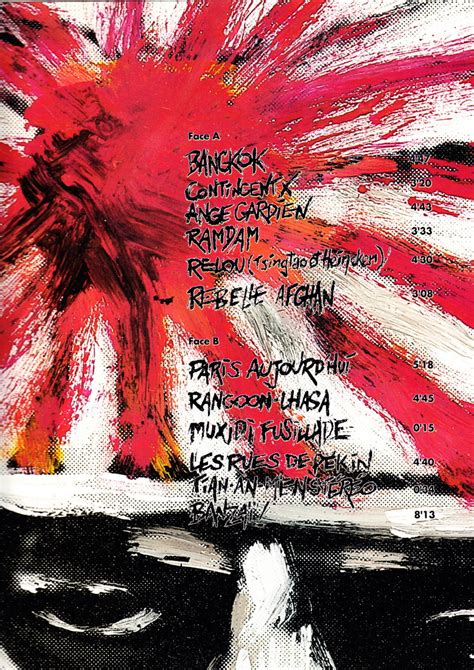 Face A
BANGKOK 4'47
CONTINGENT X 3'20
ANGE GARDIEN 4'43
RAMDAM 3'33
RELOU (Tsingtao et Heineken) 4'30
REBELLE AFGHAN 3'08
Face B
PARIS AUJOURD'HUI 5'18
RANGOON-LHASA 4'45
FUSILLADE 0'15
LES RUES DE PEKIN 4'40
TIAN-AN-MEN STEREO
BANZAÏ! 8'13